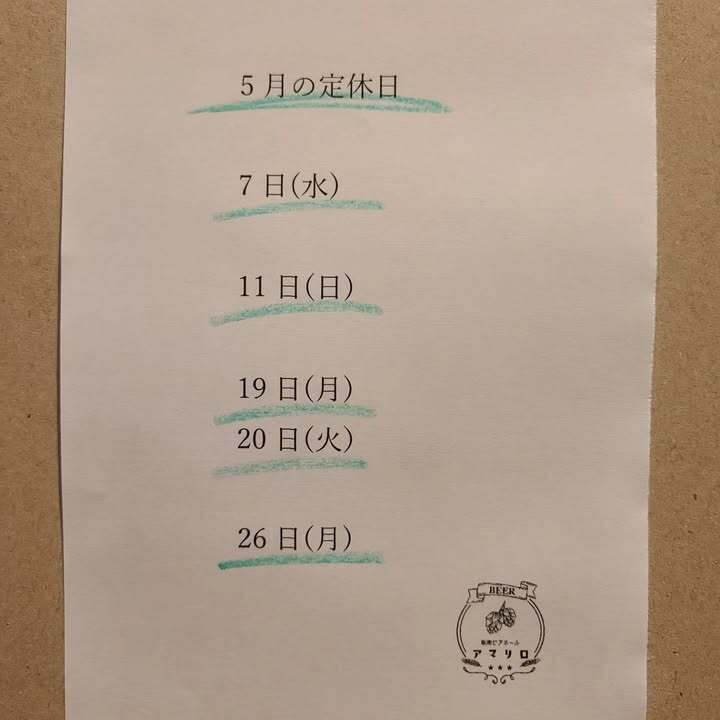 5月の定休日
7日(水)
11日(日)
19日(月)
20日(火)
26日(月)
BEER
ビアホール
アマリロ